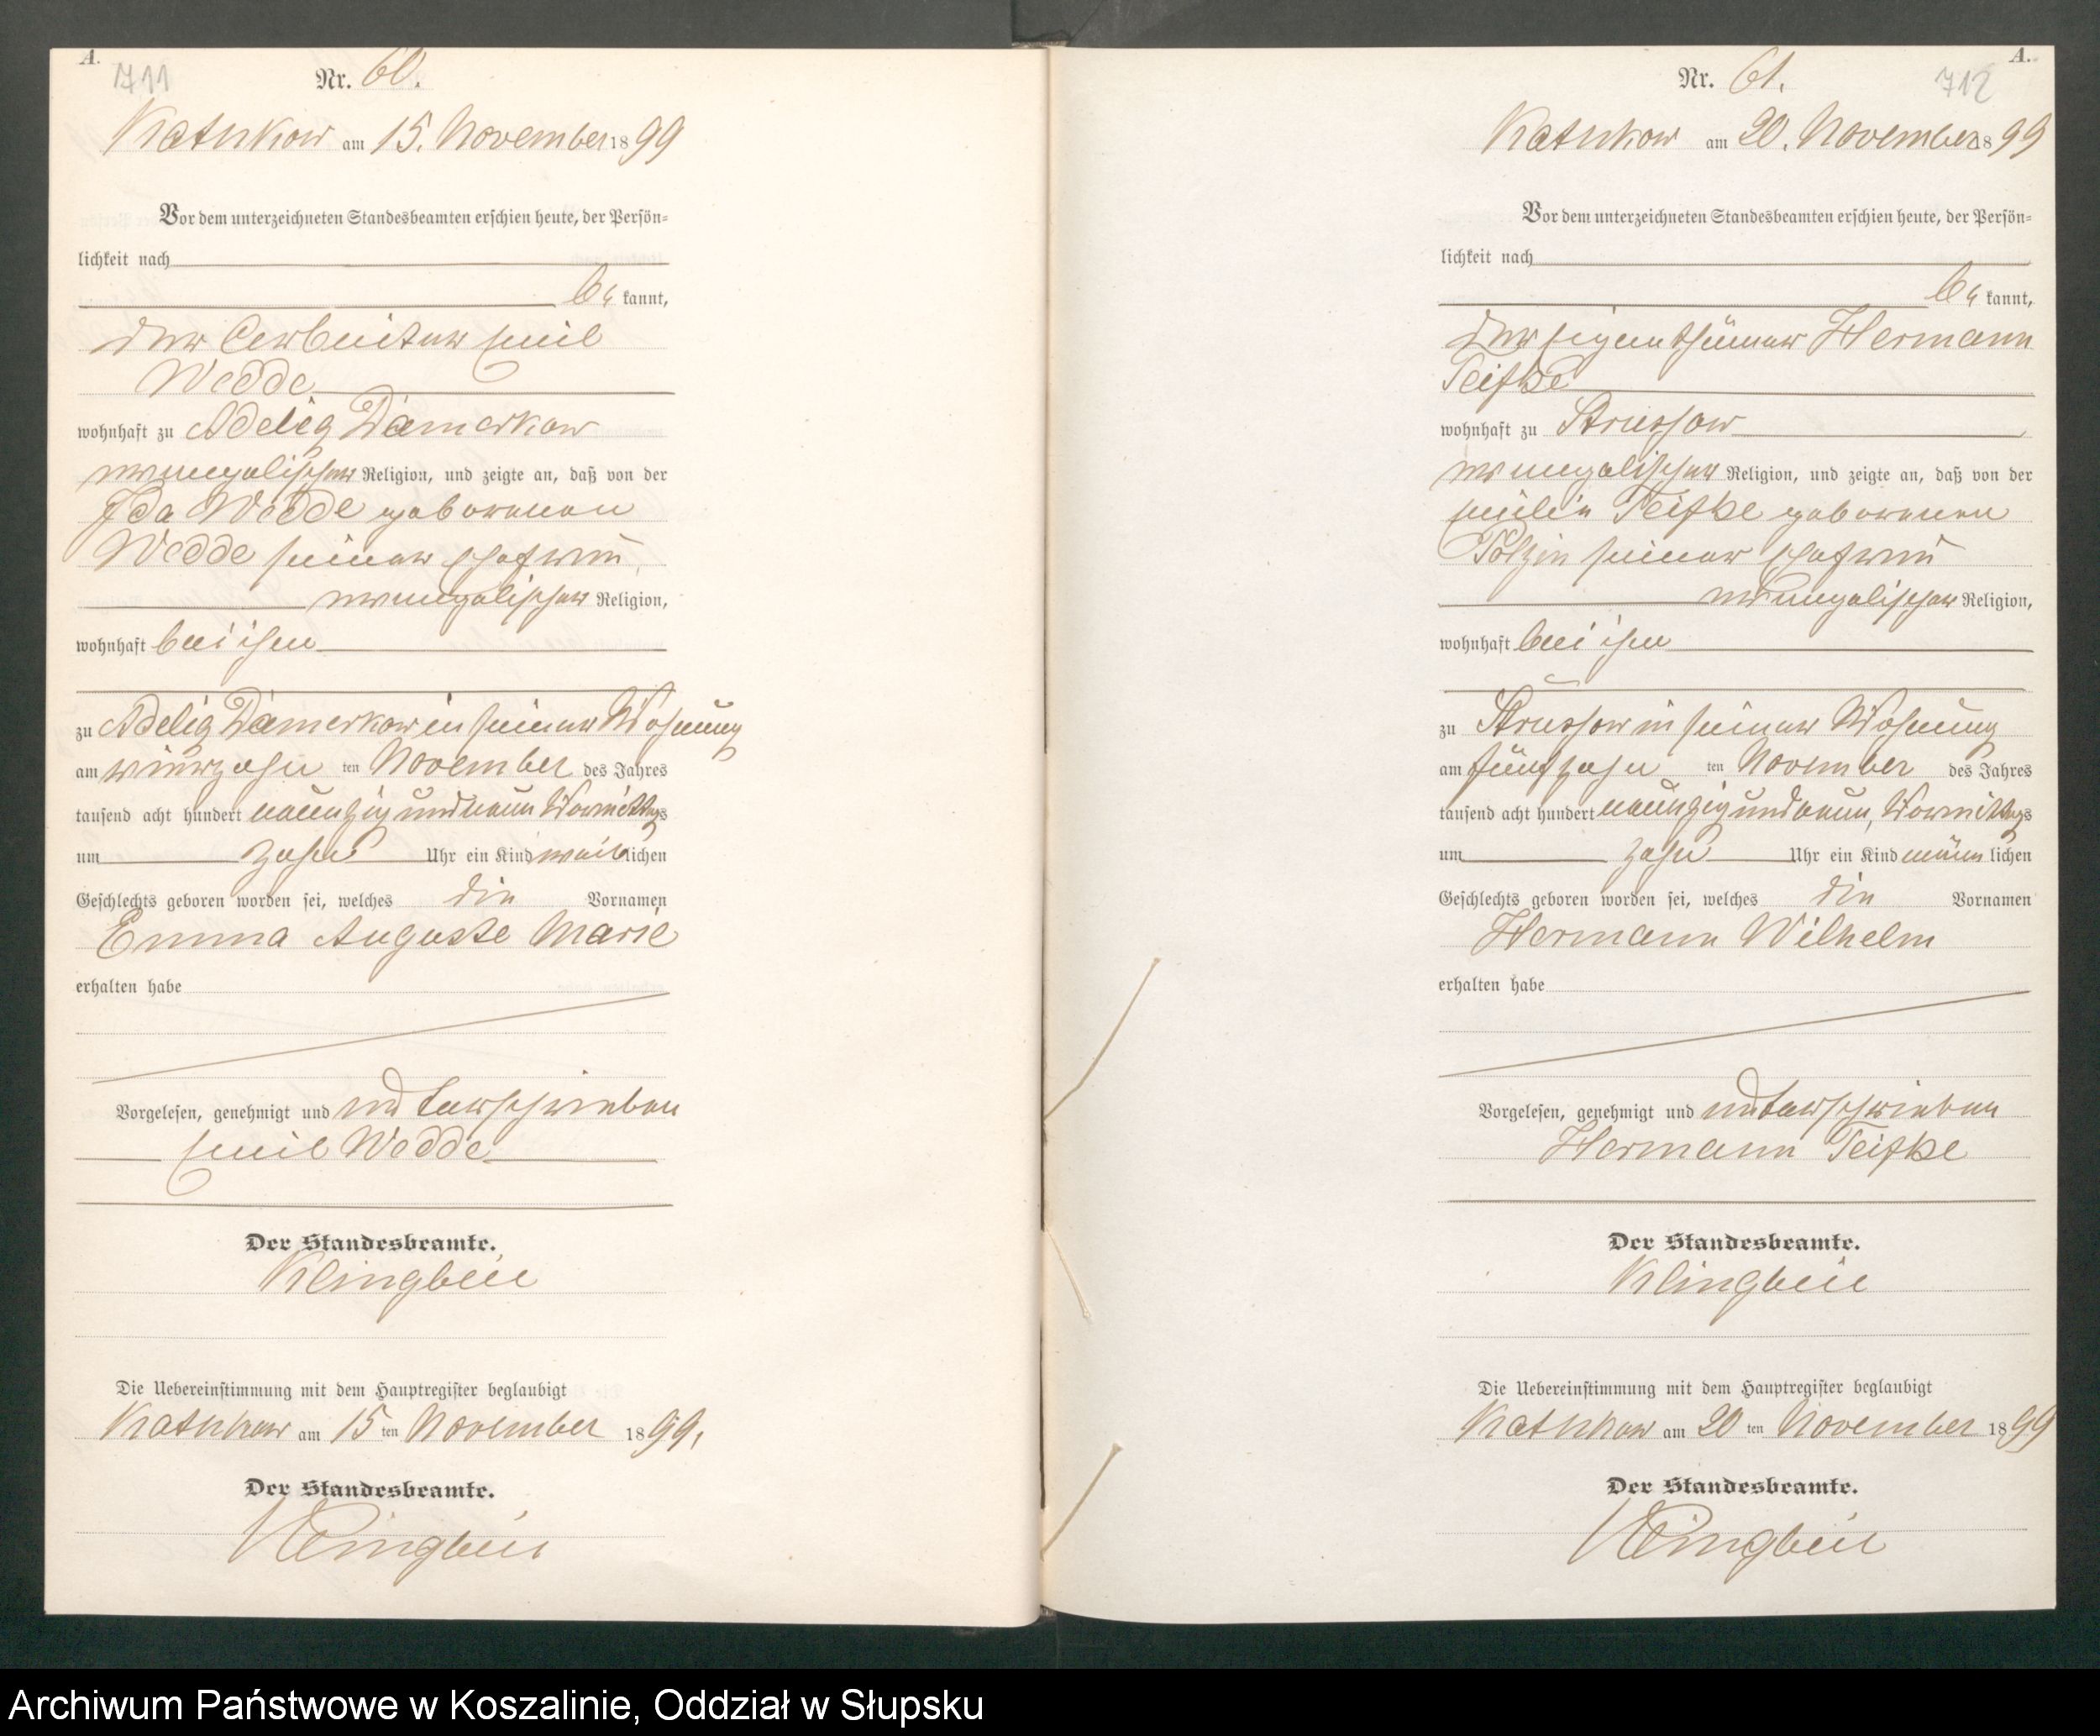 A.
711
Nr. 60.
Katrkow am 15. November 1899
Vor dem unterzeichneten Standesbeamten erschien heute, der Persön-
lichkeit nach
be kannt,
der Arbeiter Emil
Wedde
wohnhaft zu Adelig Damerkow
evangelischer Religion, und zeigte an, daß von der
Ida Wedde geborenen
Wedde seiner Ehefrau
evangelischer Religion,
wohnhaft bei ihm
zu Adelig Damerkow in seiner Wohnung
am vierzehn ten November des Jahres
tausend acht hundert neunzig und neun Vormittags
um zehn Uhr ein Kind weiblichen
Geschlechts geboren worden sei, welches die Vornamen
Emma Auguste Marie
erhalten habe
Vorgelesen, genehmigt und unterschrieben
Emil Wedde
Der Standesbeamte.
Klingbeil
Die Uebereinstimmung mit dem Hauptregister beglaubigt
Katrkow am 15 ten November 1899.
Der Standesbeamte.
Klingbeil
A.
712
Nr. 61.
Katrkow am 20. November 1899
Vor dem unterzeichneten Standesbeamten erschien heute, der Persön-
lichkeit nach
be kannt,
der Eigenthümer Hermann
Teifke
wohnhaft zu Strussow
evangelischer Religion, und zeigte an, daß von der
Emilie Teifke geborenen
Polzin seiner Ehefrau
evangelischer Religion,
wohnhaft bei ihm
zu Strussow in seiner Wohnung
am fünfzehn ten November des Jahres
tausend acht hundert neunzig und neun, Vormittags
um zehn Uhr ein Kind männlichen
Geschlechts geboren worden sei, welches die Vornamen
Hermann Wilhelm
erhalten habe
Vorgelesen, genehmigt und unterschrieben
Hermann Teifke
Der Standesbeamte.
Klingbeil
Die Uebereinstimmung mit dem Hauptregister beglaubigt
Katrkow am 20 ten November 1899
Der Standesbeamte.
Klingbeil
Archiwum Państwowe w Koszalinie, Oddział w Słupsku